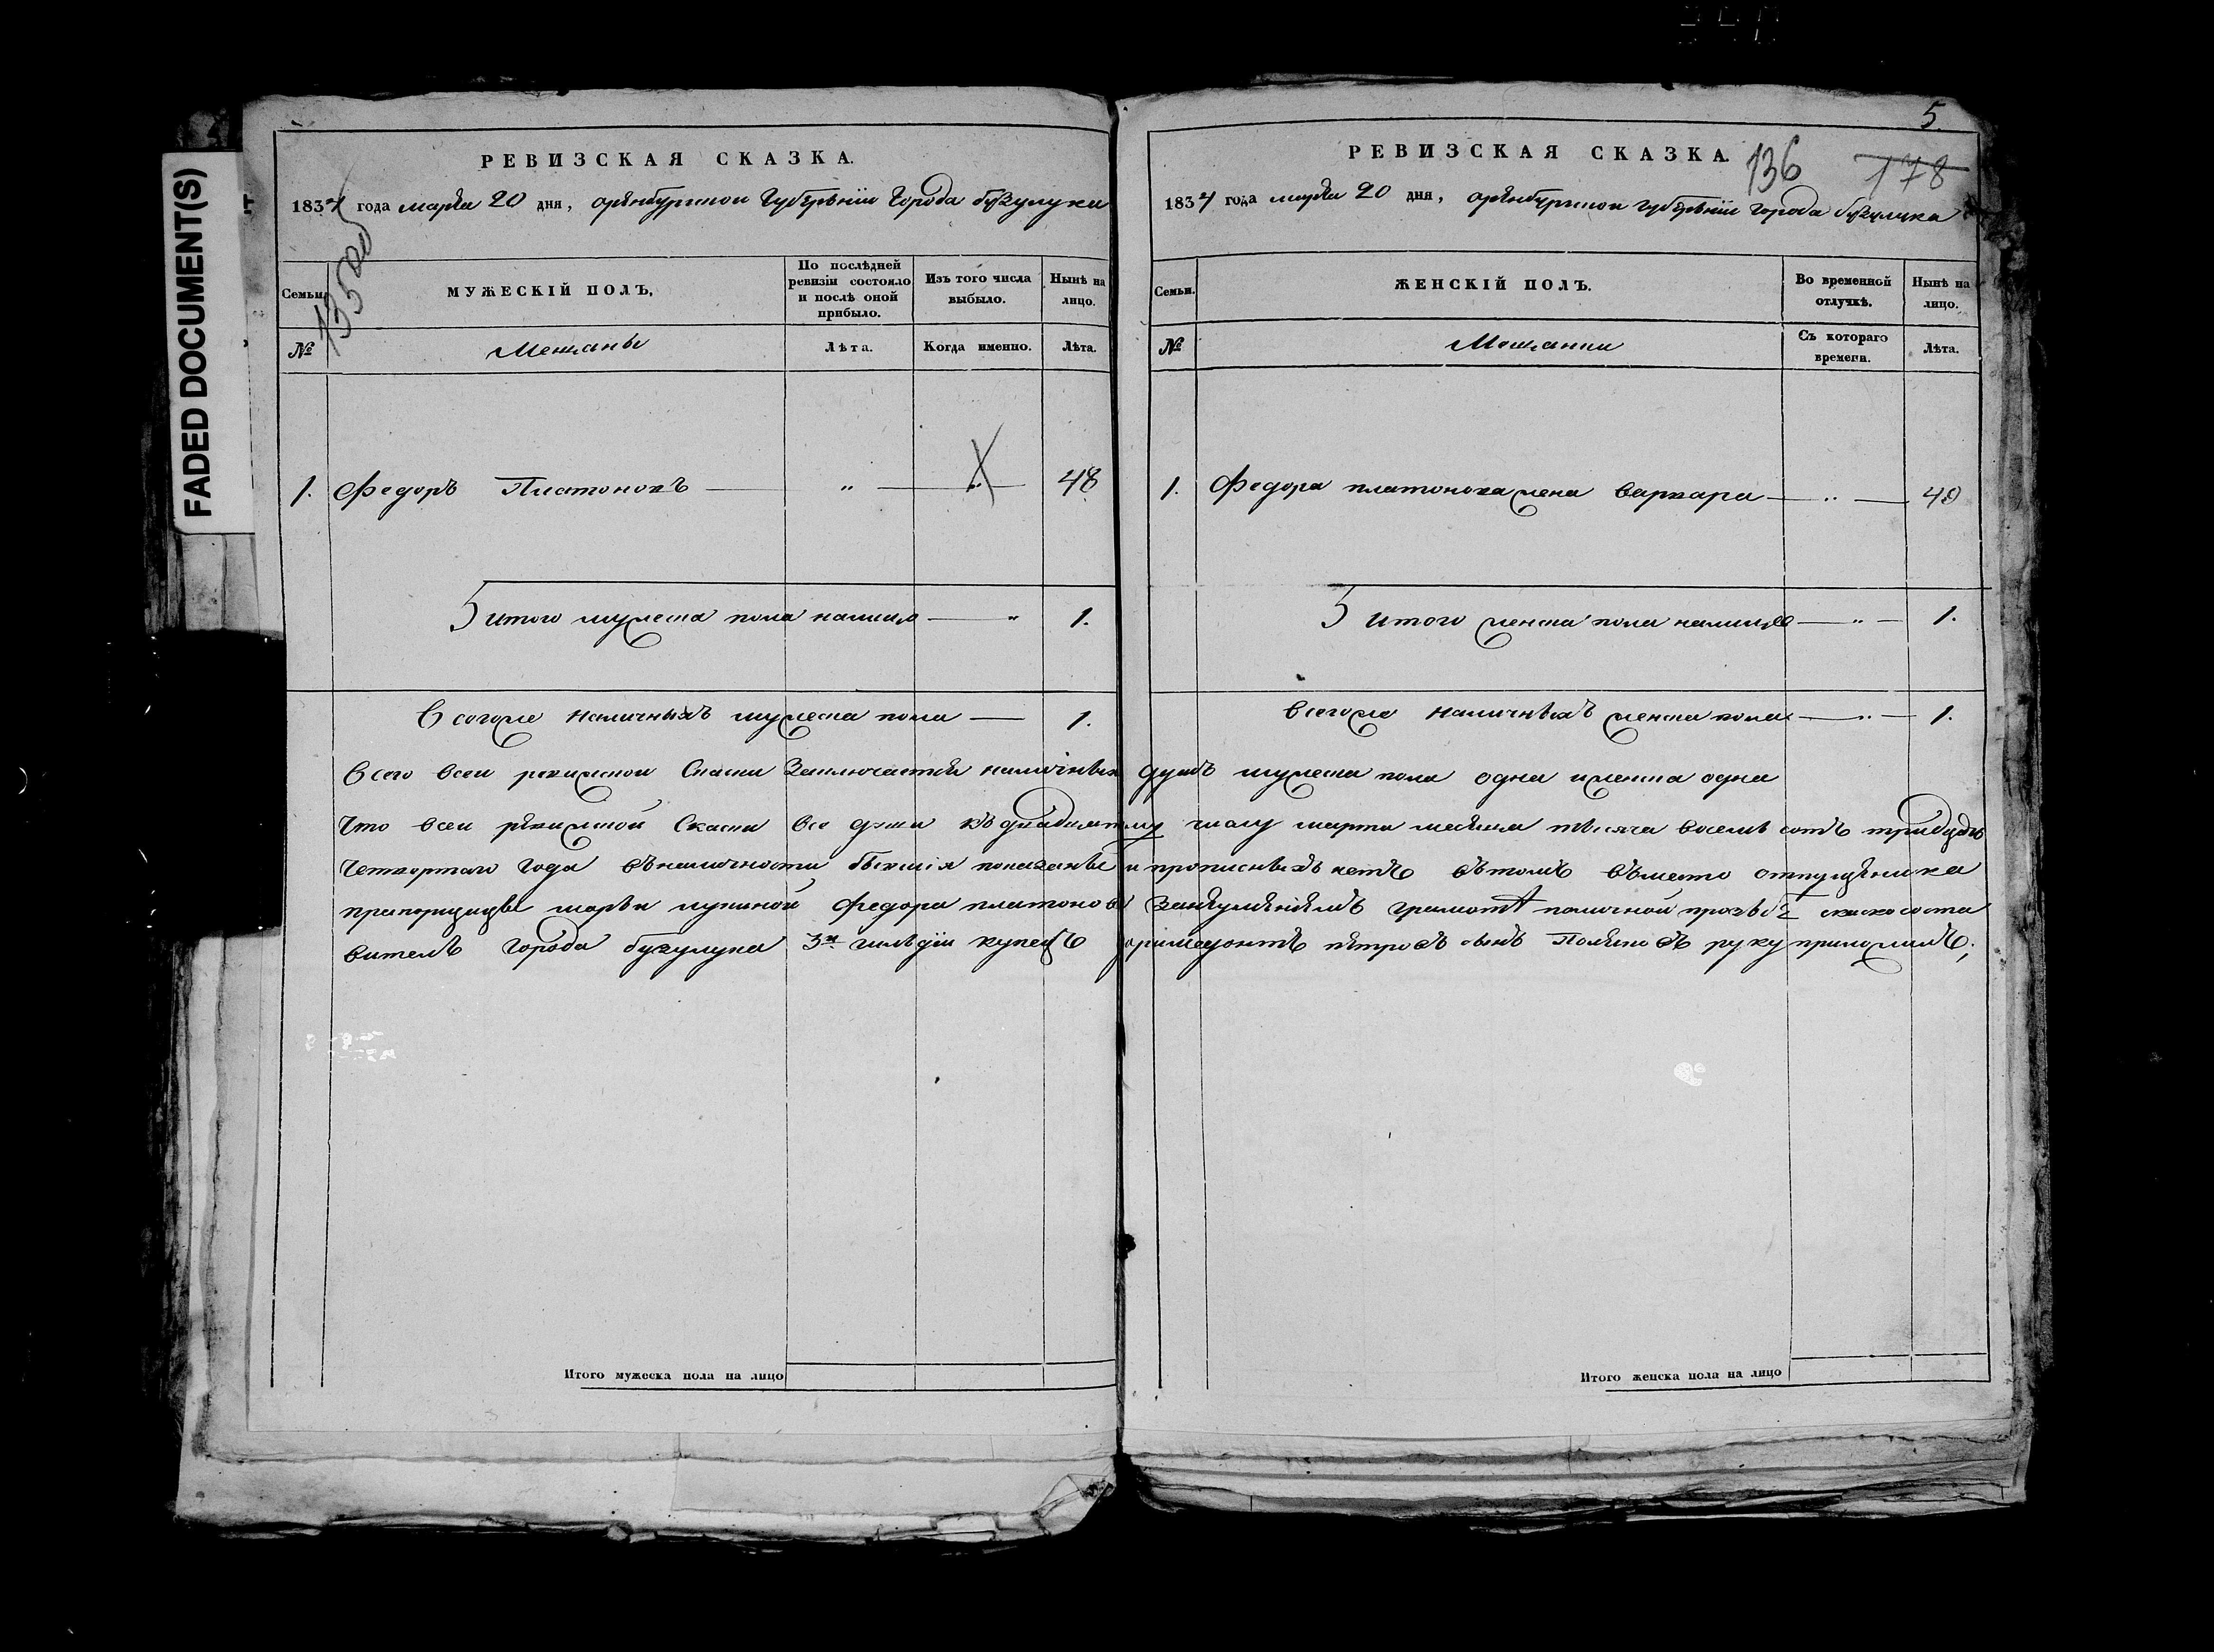 FADED DOCUMENT(S)
РЕВИЗСКАЯ СКАЗКА.
1834 года марта 20 дня, оренбургской губерьнии города бузулука
Семьи.
МУЖЕСКІЙ ПОЛЪ,
По послѣдней ревизіи состояло и послѣ оной прибыло.
Изъ того числа выбыло.
Нынѣ на лицо.
№
Мещаны
Лѣта.
Когда именно.
Лѣта.
1. Федоръ Платоновъ — „ — „ — 48
Итого мужеска пола налицо — „ 1.
Всегоже наличныхъ мужеска пола — 1.
Итого мужеска пола на лицо
5.
РЕВИЗСКАЯ СКАЗКА.
136 178
1834 года марта 20 дня, оренбургской губерьнии города бузулука
Семьи.
ЖЕНСКІЙ ПОЛЪ.
Во временной отлучкѣ.
Нынѣ на лицо.
№
Мещанки
Съ котораго времени.
Лѣта.
1. Федора платонова жена варвара — „ — 40
Итого женска пола налицо — „ — 1.
Всегоже наличныхъ женска пола — „ — 1.
Всего всеи ревижской Сказки Заключается наличныхъ душъ мужеска пола одна иженска одна
Что всеи ревижской Сказки все души къ двадцатому числу марта месяца тысяча восемь сотъ тридцать
Четвертаго года въ наличности бывшія показаны и прописныхъ нетъ въ томъ въместо отпущеника
прапорщицы марьи лупиной федора платонова Занеуменіемъ грамоте поличной прозьбе сказкососта
вителъ города бузулука 3й гильдіи купецъ петровъ сынъ руку приложилъ;
Итого женска пола на лицо